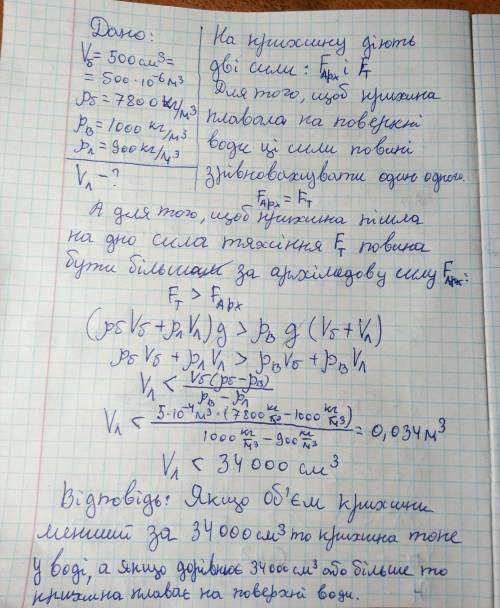 Дано:
V₅ = 500 см³ =
= 500·10⁻⁶ м³
ρ₅ = 7800 кг/м³
ρ_в = 1000 кг/м³
ρ_л = 900 кг/м³
V_л - ?
На крижину діють
дві сили: F_Арх і F_т
Для того, щоб крижина
плавала на поверхні
води ці сили повині
зрівноважувати один одного.
F_Арх = F_т
А для того, щоб крижина пішла
на дно сила тяжіння F_т повина
бути більшою за архімедову силу F_Арх:
F_т > F_Арх
(ρ₅V₅ + ρ_лV_л)g > ρ_в g (V₅ + V_л)
ρ₅V₅ + ρ_лV_л > ρ_вV₅ + ρ_вV_л
V_л < V₅(ρ₅ - ρ_в) / ρ_в - ρ_л
V_л < 5·10⁻⁴ м³ · (7800 кг/м³ - 1000 кг/м³) / 1000 кг/м³ - 900 кг/м³ = 0,034 м³
V_л < 34 000 см³
Відповідь: Якщо об'єм крижини
менший за 34 000 см³ то крижина тоне
у воді, а якщо дорівнює 34 000 см³ або більше то
крижина плаває на поверхні води.